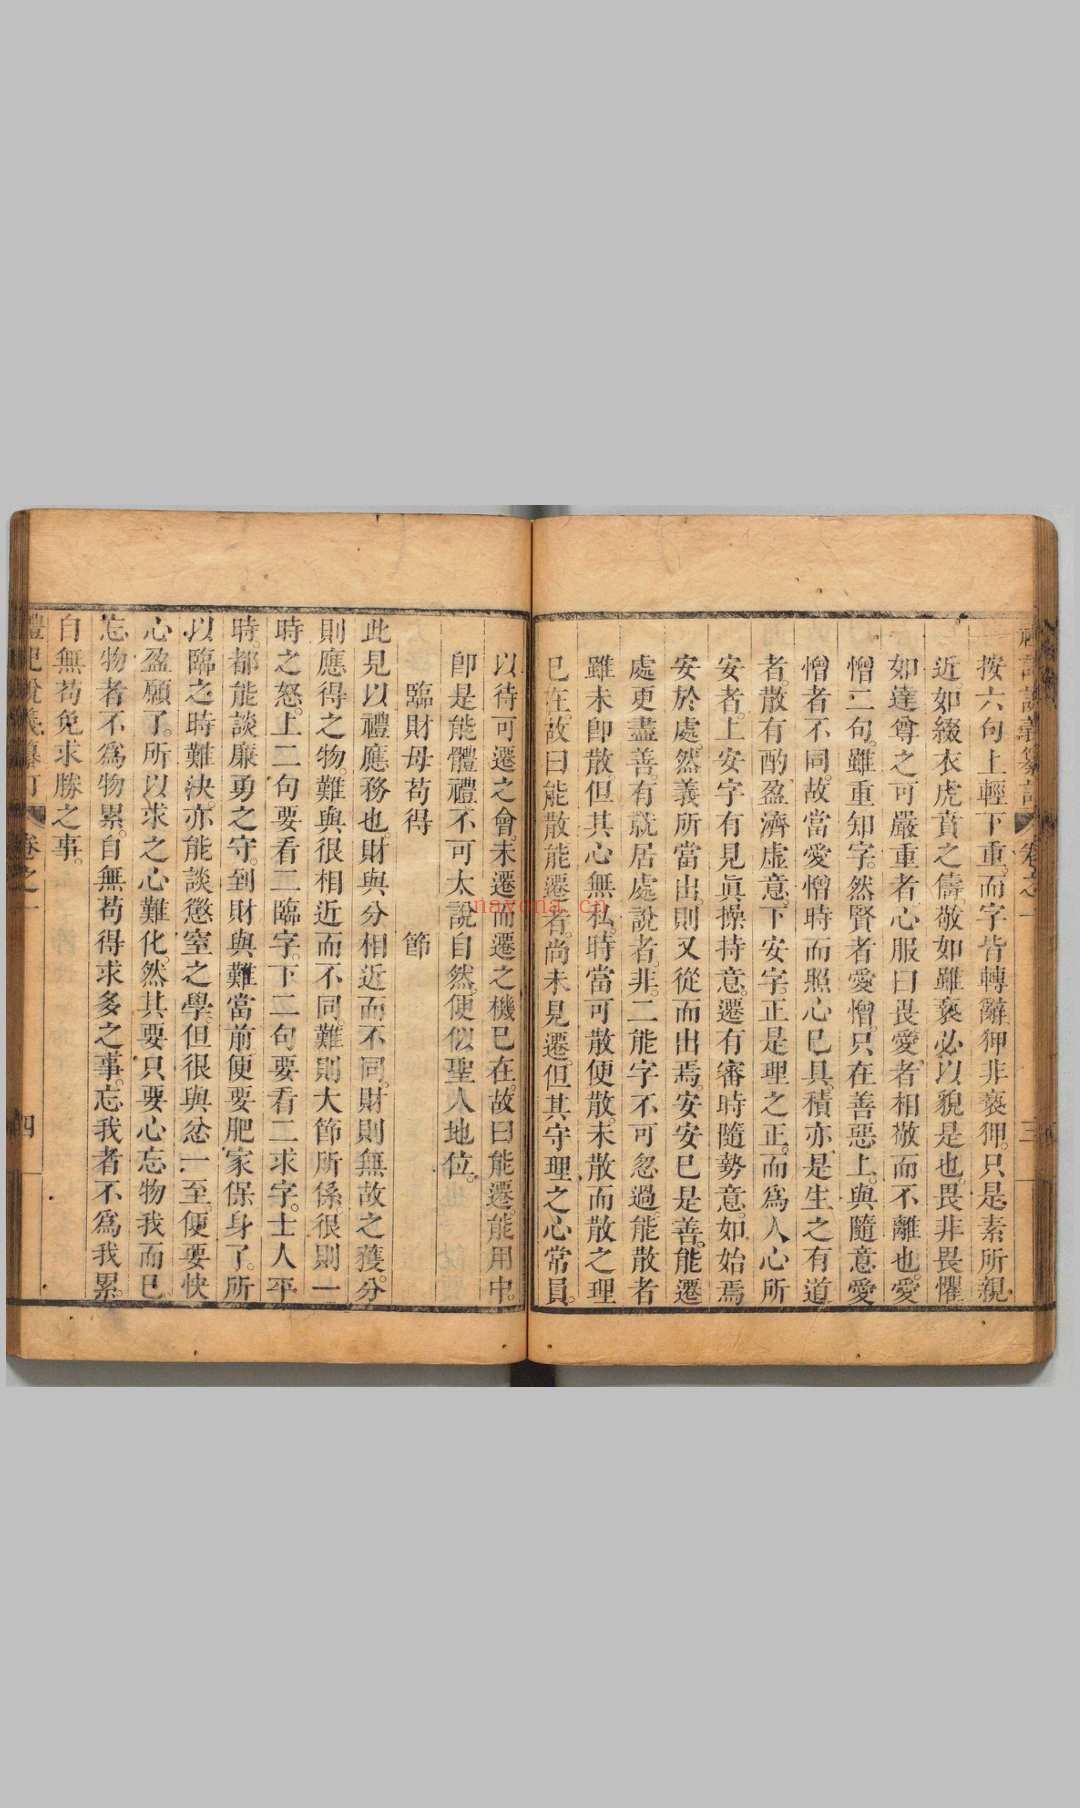 按六句上輕下重。而字皆轉辭狎非褻狎。只是素所親
近如綴衣虎賁之儔。敬如雖褻必以貌是也。畏非畏懼
如達尊之可嚴重者。心服曰畏。愛者相敬而不離也。愛
憎二句。雖重知字。然賢者愛憎。只在善惡上。與隨意愛
憎者不同。故當愛憎時而照心已具。積亦是生之有道
者。散有酌盈濟虛意。下安字正是理之正。而爲人心所
安者。上安字有見眞操持意。遷有審時隨勢意。如始焉
安於處。然義所當出。則又從而出焉。安安已是善。能遷
處更盡善。有就居處說者。非。二能字不可忽過。能散者
雖未卽散。但其心無私。時當可散便散。未散而散之理
已在。故曰能散。能遷者。尚未見遷。但其守理之心常員。
以待可遷之會。未遷而遷之機已在。故曰能遷。能用中。
卽是能體禮。不可太說自然。便似聖人地位。
臨財母苟得 節
此見以禮應務也。財與分相近而不同。財則無故之獲。分
則應得之物。難與很相近而不同。難則大節所係。很則一
時之怒。上二句要看二臨字。下二句要看二求字。士人平
時。都能談廉勇之守。到財與難當前。便要肥家保身了。所
以臨之時難決。亦能談懲窒之學。但很與忿一至。便要快
心盈願了。所以求之心難化。然其要只要心忘物我而已
忘物者不爲物累。自無苟得求多之事。忘我者不爲我累
自無苟免求勝之事。
禮記說義纂訂 卷之一 四
nayona.cn